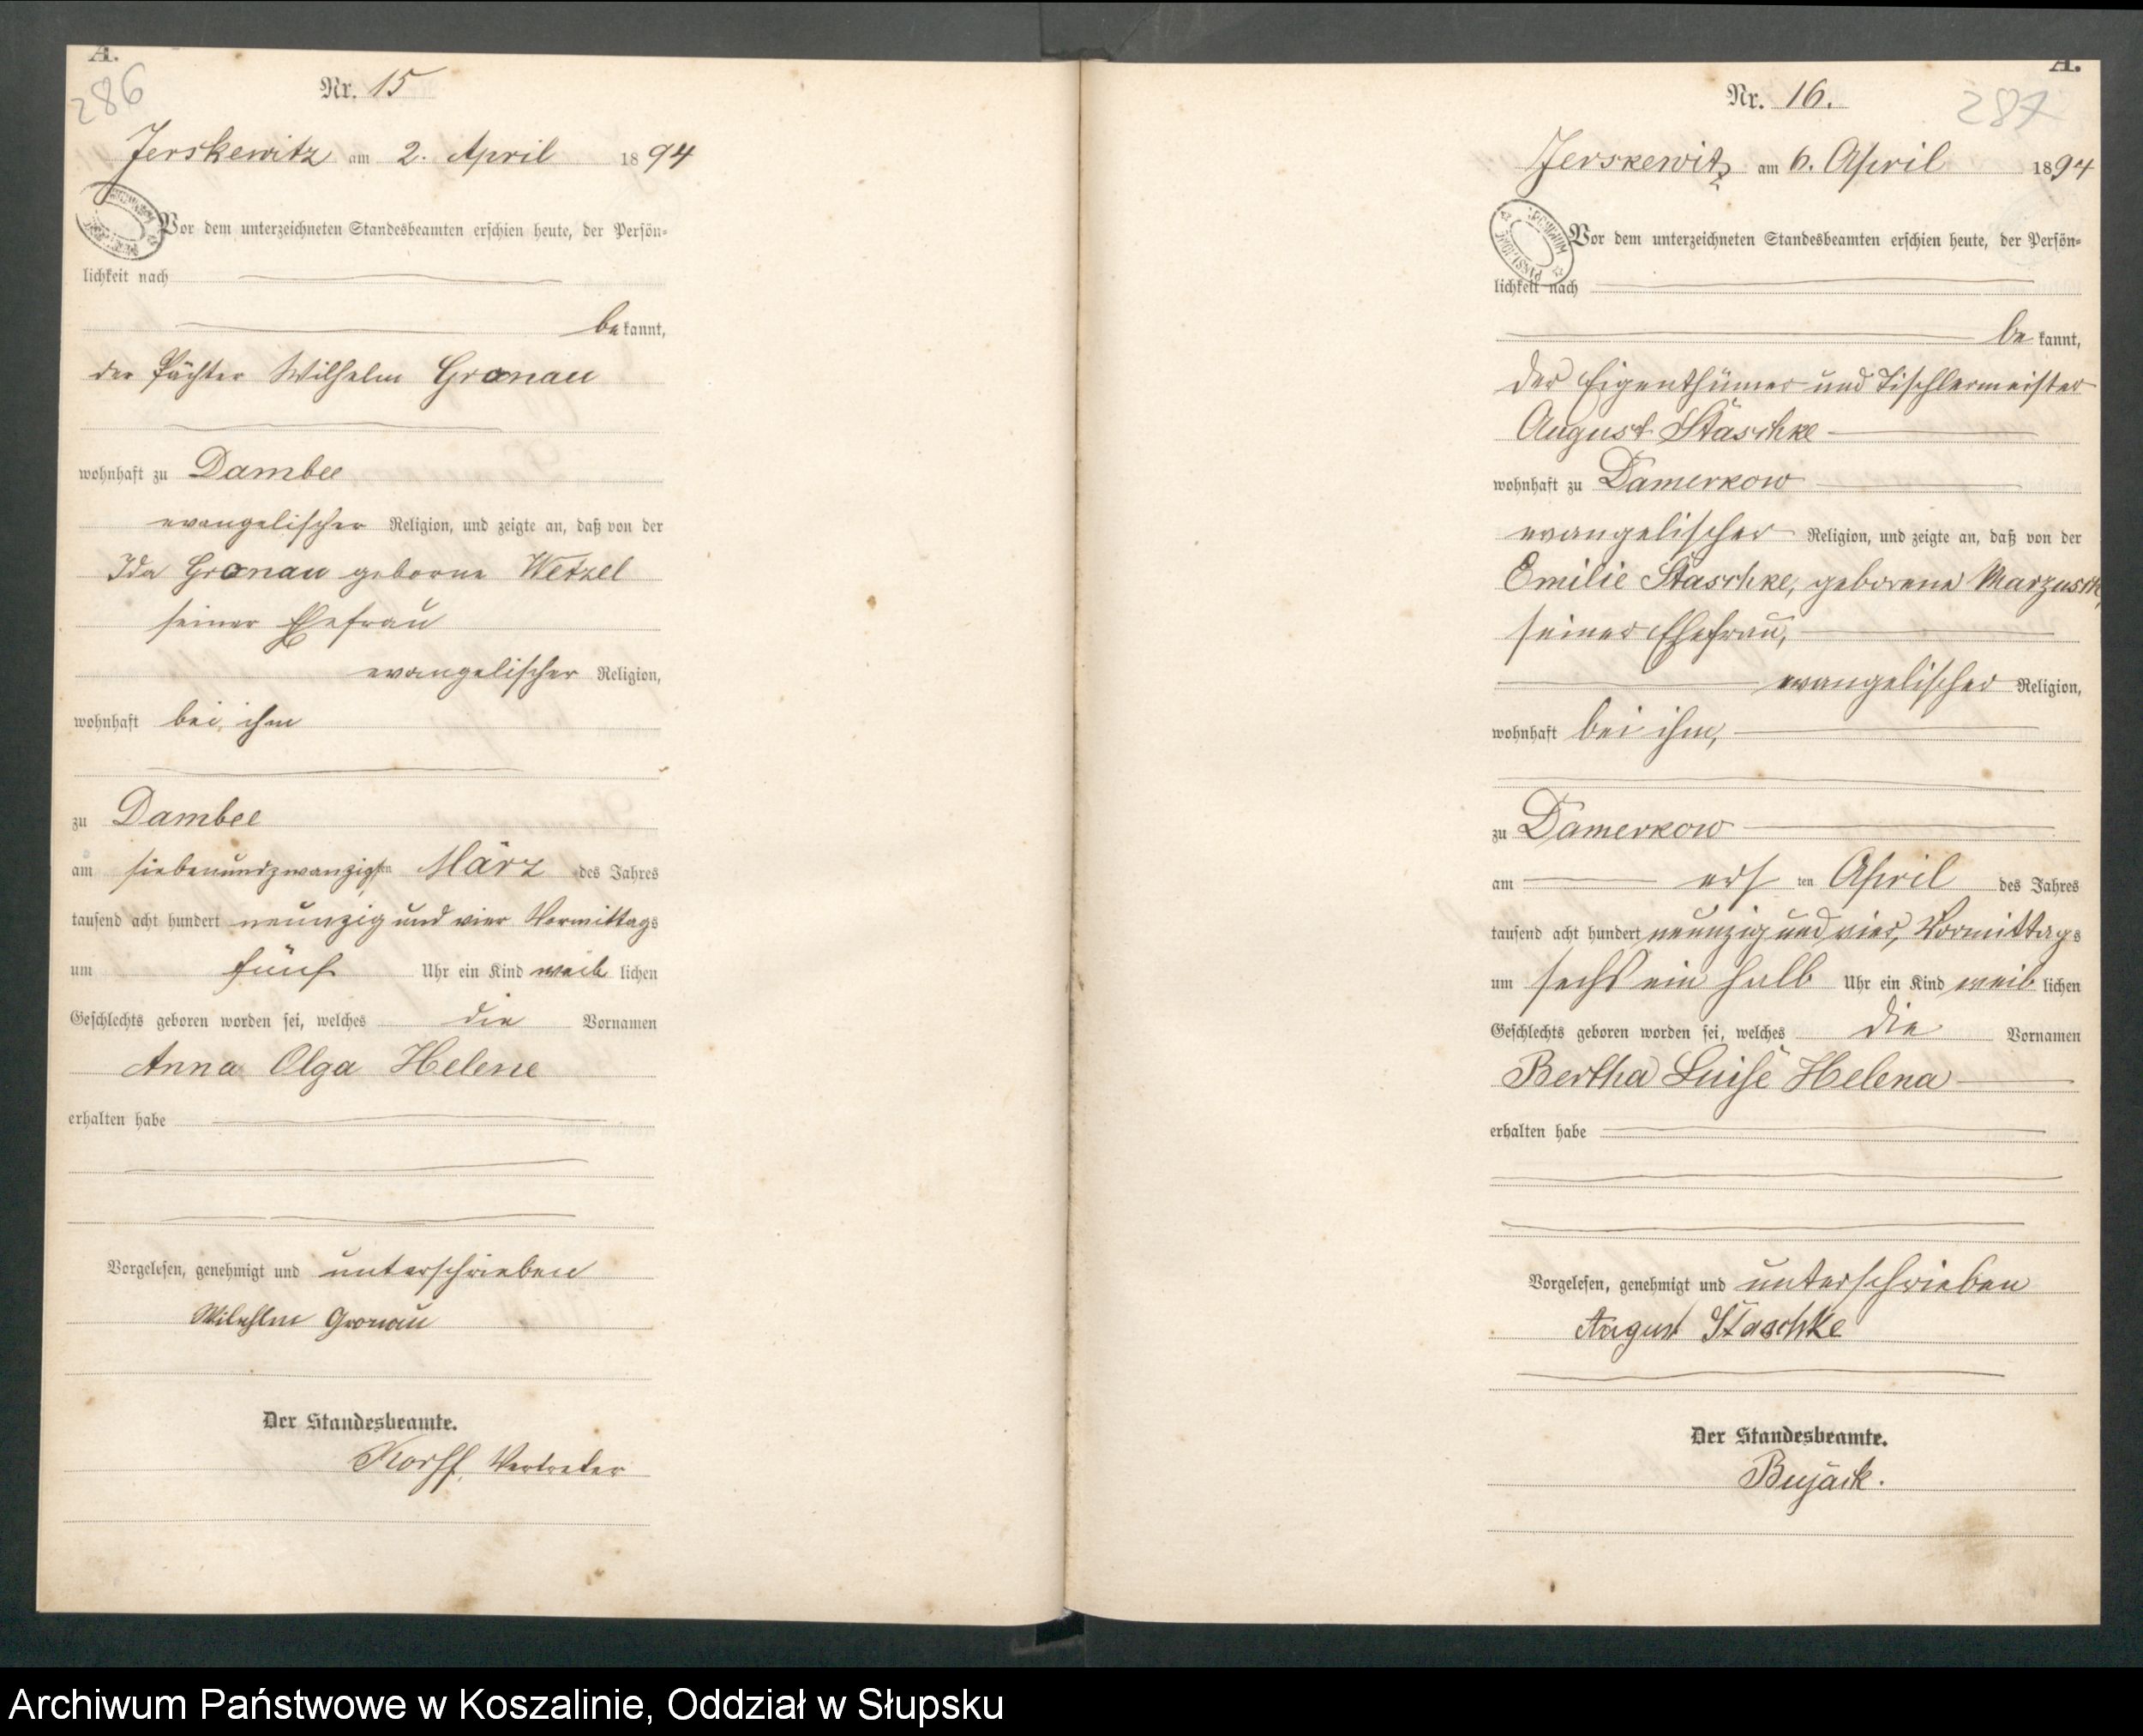 A.
286
Nr. 15
Jerskewitz am 2. April 1894
Vor dem unterzeichneten Standesbeamten erschien heute, der Persön-
lichkeit nach
bekannt,
der Pächter Wilhelm Gronau
wohnhaft zu Dambee
evangelischer Religion, und zeigte an, daß von der
Ida Gronau geborne Wetzel
seiner Ehefrau
evangelischer Religion,
wohnhaft bei ihm
zu Dambee
am siebenundzwanzigsten März des Jahres
tausend acht hundert neunzig und vier Vormittags
um fünf Uhr ein Kind weiblichen
Geschlechts geboren worden sei, welches die Vornamen
Anna Olga Helene
erhalten habe
Vorgelesen, genehmigt und unterschrieben
Wilehlm Gronau
Der Standesbeamte.
Korff, Vertreter
A.
287
Nr. 16.
Jerskewitz am 6. April 1894
ARCHIWUM PAŃSTWOWE
Vor dem unterzeichneten Standesbeamten erschien heute, der Persön-
lichkeit nach
bekannt,
der Eigenthümer und Tischlermeister
August Staschke
wohnhaft zu Damerkow
evangelischer Religion, und zeigte an, daß von der
Emilie Staschke, geborene Marzusch,
seiner Ehefrau,
evangelischer Religion,
wohnhaft bei ihm,
zu Damerkow
am ersten April des Jahres
tausend acht hundert neunzig und vier, Vormittags
um sechs ein halb Uhr ein Kind weiblichen
Geschlechts geboren worden sei, welches die Vornamen
Bertha Luise Helena
erhalten habe
Vorgelesen, genehmigt und unterschrieben
August Staschke
Der Standesbeamte.
Bujack.
Archiwum Państwowe w Koszalinie, Oddział w Słupsku